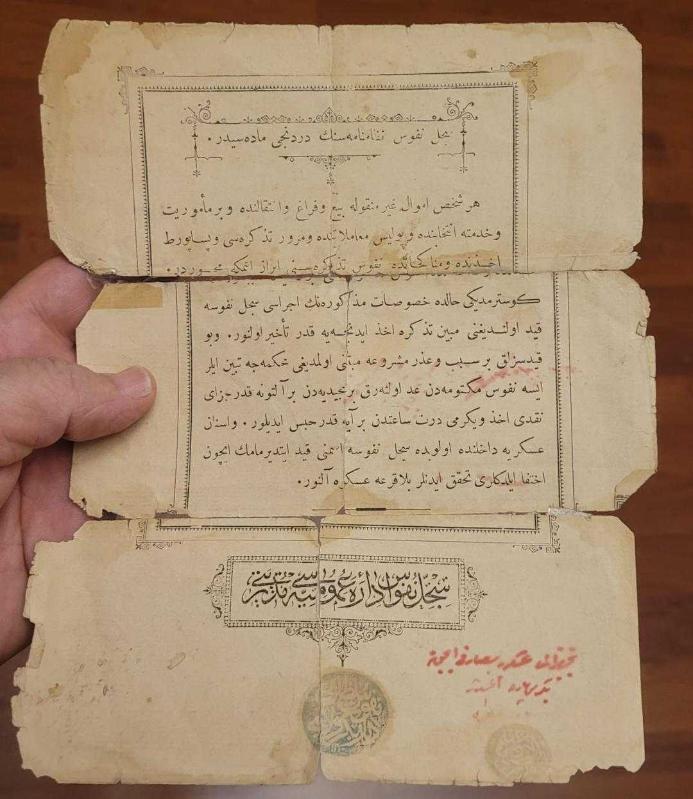 سجل نفوس نظامنامه‌سنك دردنجی ماده‌سیدر.
هر شخص اموال غیر منقوله بیع و فراغ و انتقالنده و بر مأموریت
و خدمته انتخابنده و پولیس معاملاتنده و مرور تذكره‌سی و پساپورط
اخذنده و مناكحاتده نفوس تذكره‌سنی ابراز ایتمكه مجبوردر.
كوسترمدیكی حالده خصوصات مذكوره‌نك اجراسی سجل نفوسه
قید اولندیغنی مبین تذكره اخذ ایدنجه‌یه قدر تأخیر اولنور. و بو
قیدسزلق بر سبب و عذر مشروعه مبتنی اولمدیغی محكمه‌جه تبین ایلر
ایسه نفوس مكتومه‌دن عد اولنه‌رق بر مجیدیه‌دن بر آلتونه قدر جزای
نقدی اخذ و یكرمی درت ساعتدن بر آیه قدر حبس ایدیلور. و اسنان
عسكریه داخلنده اولوبده سجل نفوسه اسمنی قید ایتدیرمامك ایچون
اختفا ایلدكلری تحقق ایدنلر بلا قرعه عسكره آلنور.
سجل نفوس اداره عمومیه‌سی مدیریتی